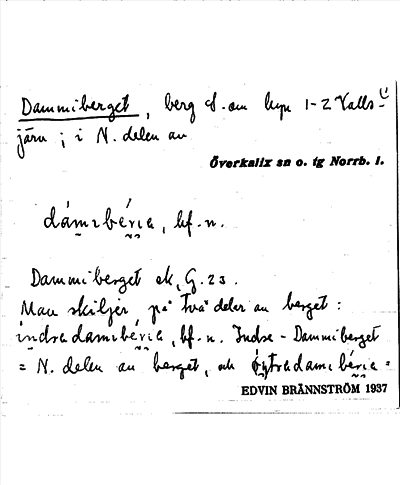 Dammiberget, berg S. om byn 1-2 Valls-
järv; i N. delen av
Överkalix sn o. tg Norrb. l.
dámιbérιa, bf. n.
Dammiberget ek, G. 23.
Man skiljer på två deler av berget:
índradamιbérιa, bf. n. Indre-Dammiberget
= N. delen av berget, och ýtradamιbérιa =
EDVIN BRÄNNSTRÖM 1937